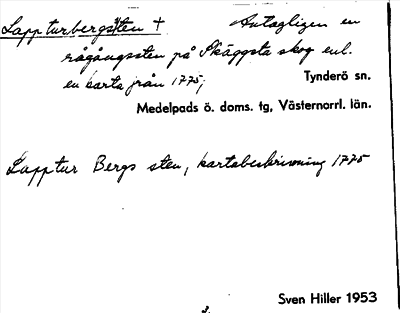 Lappturbergsten † Antagligen en
rågångssten på Skäggsta skog enl.
en karta från 1775;
Tynderö sn.
Medelpads ö. doms. tg, Västernorrl. län.
Lapptur Bergs sten, kartabeskrivning 1775
Sven Hiller 1953